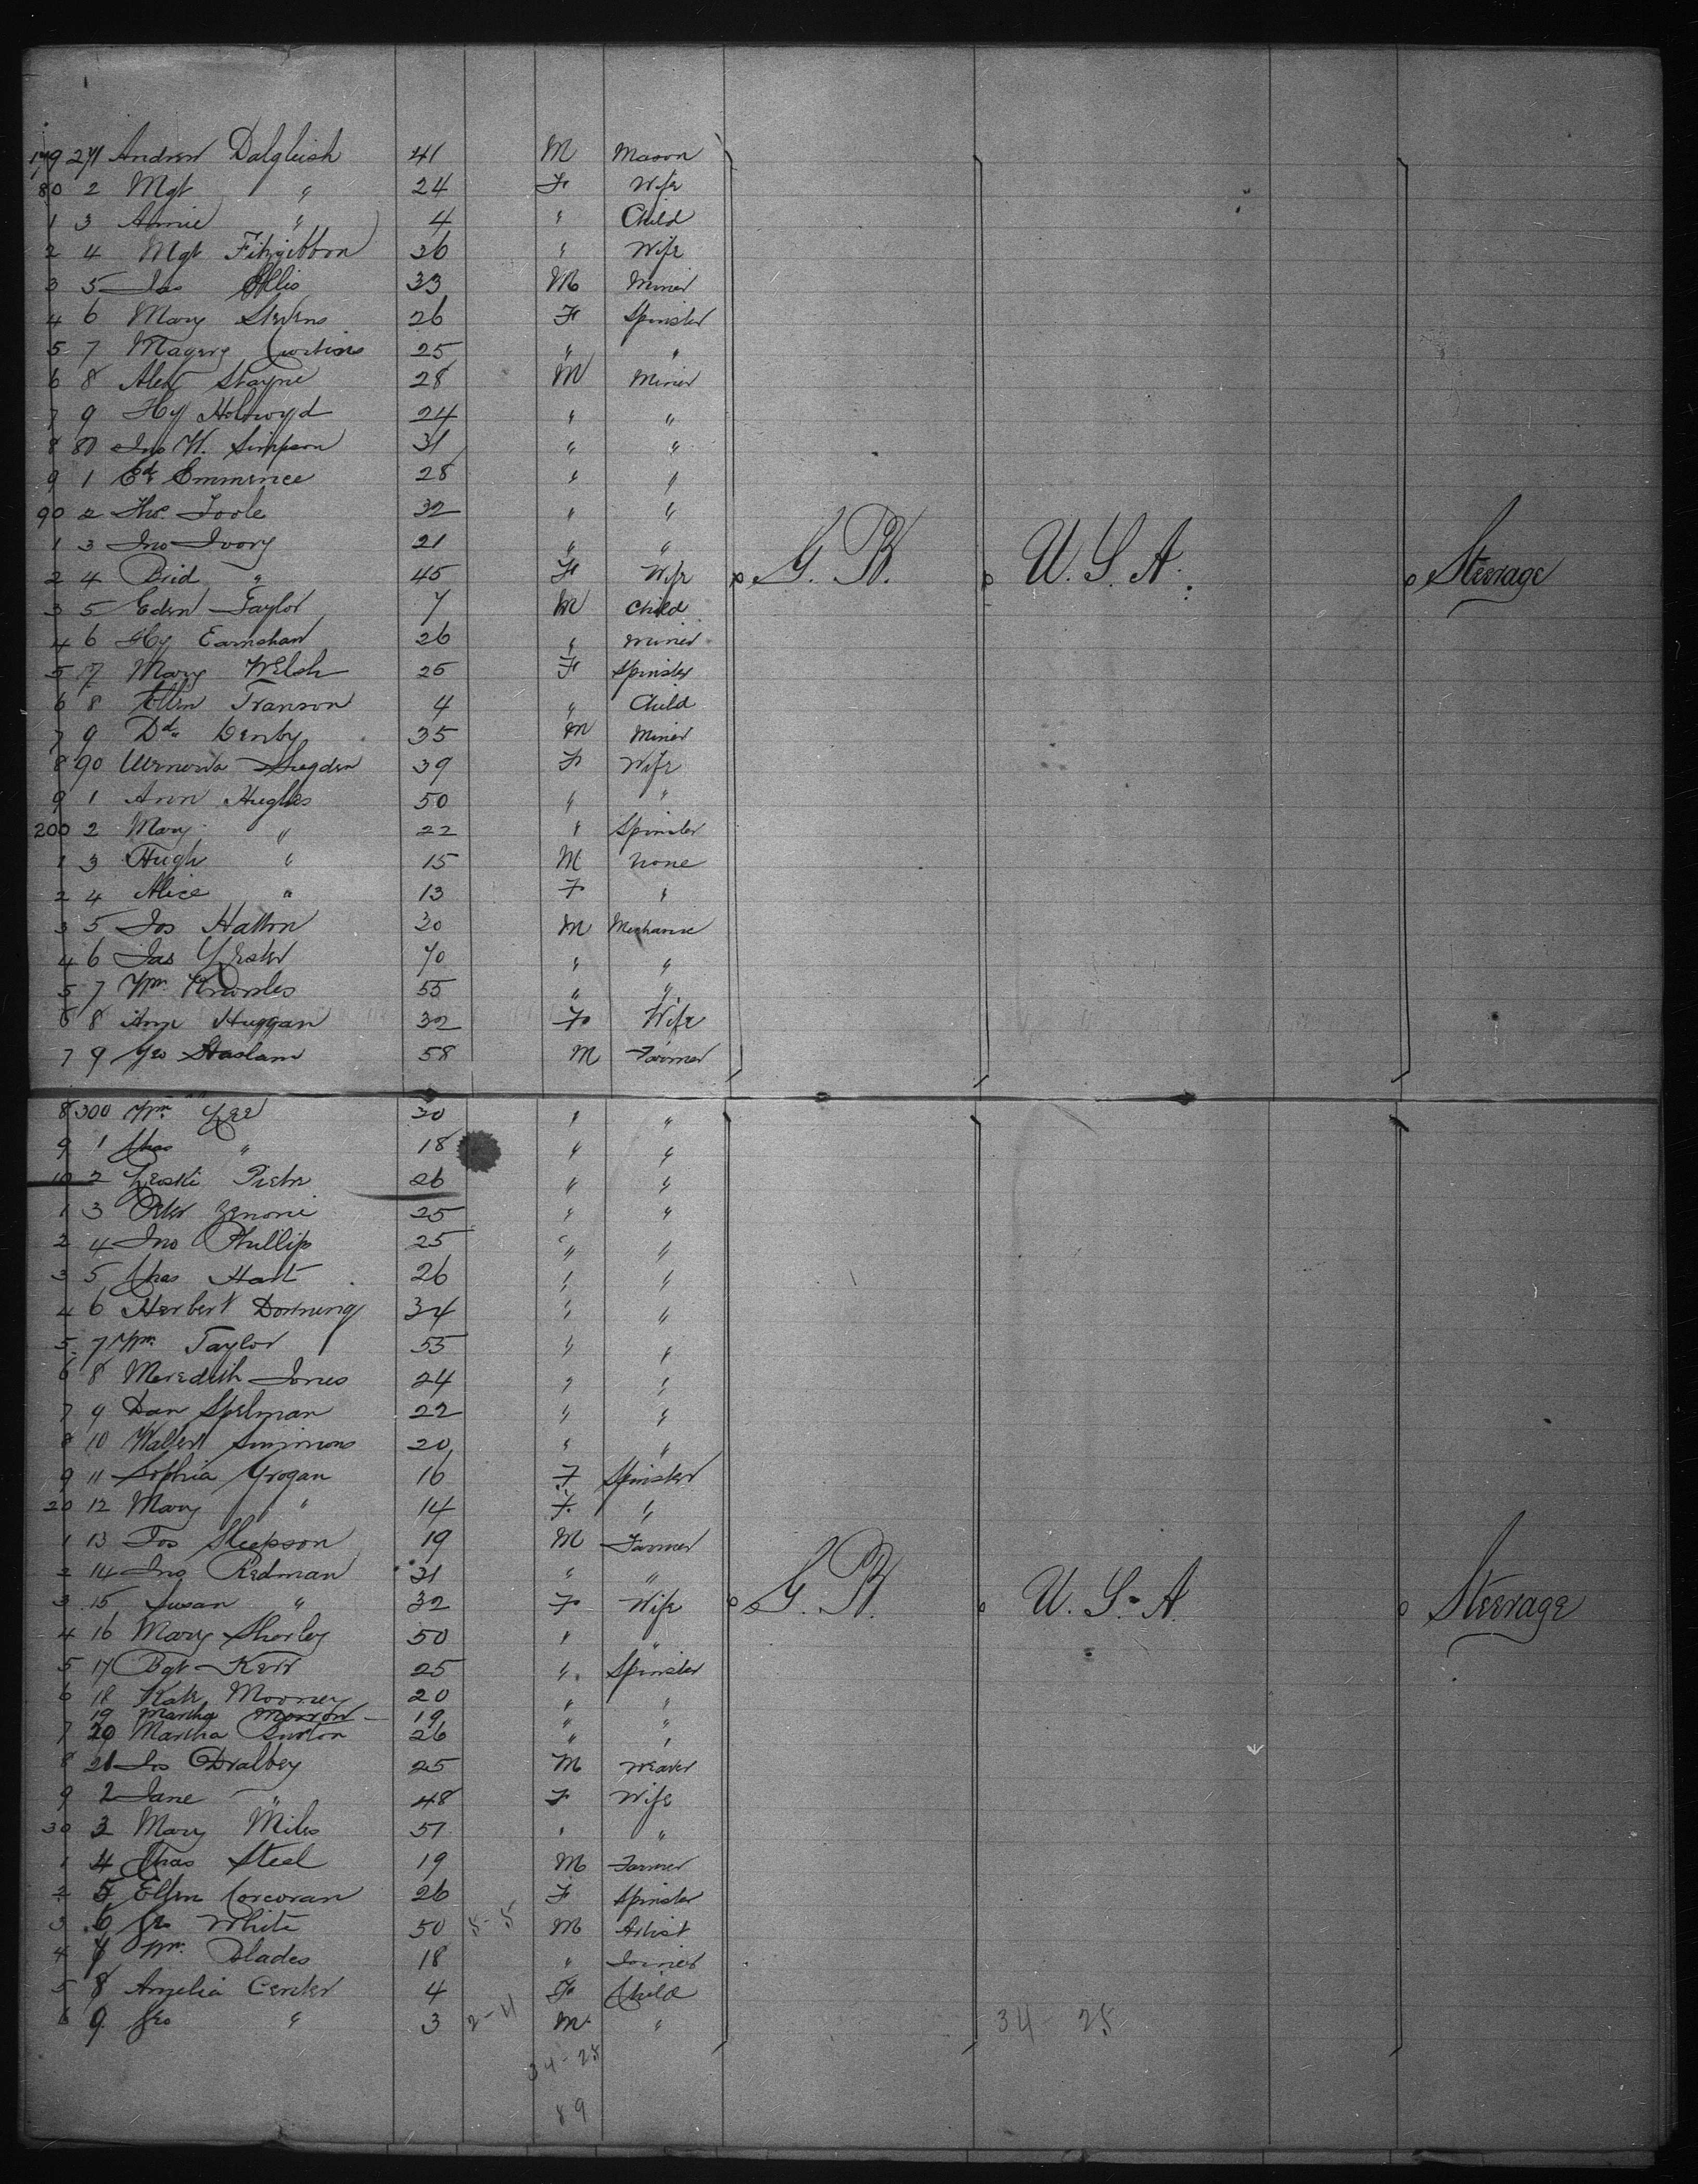 179 271 Andrew Dalgleish 41 M Mason
80 2 Mgt " 24 F Wife
1 3 Annie " 4 " Child
2 4 Mgt Fitzgibbon 36 " Wife
3 5 Jas Ellis 33 M Miner
4 6 Mary Stevens 26 F Spinster
5 7 25 " "
6 8 Alex Stayne 28 M Miner
7 9 Hy Holroyd 24 " "
8 80 Jno W. Simpson 31 " "
9 1 Ed. Emmence 28 " "
90 2 Tho. Toole 32 " "
1 3 Jno Ivory 21 " "
2 4 Brid " 45 F Wife G. B. U. S. A. Steerage
3 5 Eden Taylor 7 M Child
4 6 Hy Earnshaw 26 " Miner
5 7 Mary Welsh 25 F Spinster
6 8 Ellen Transon 4 " Child
7 9 Dd. Denby 35 M Miner
8 90 Sugden 39 F Wife
9 1 Ann Hughes 50 " "
200 2 Mary " 22 " Spinster
1 3 Hugh " 15 M None
2 4 Alice " 13 F "
3 5 Jos Hatton 30 M Mechanic
4 6 Jas Lester 70 " "
5 7 Wm. Knowles 55 " "
6 8 Ann Huggan 32 F Wife
7 9 Geo Haslam 58 M Farmer
8 300 Wm. Lee 30 " "
9 1 Chas " 18 " "
10 2 Leoski Pietre 26 " "
1 3 Peter Zenonie 25 " "
2 4 Jno Phillips 25 " "
3 5 Chas Hart 26 " "
4 6 Herbert Dorning 34 " "
5 7 Wm. Taylor 55 " "
6 8 Meredith Jones 24 " "
7 9 Dan Spelman 22 " "
8 10 Walter Simmons 20 " "
9 11 Sophia Grogan 16 F Spinster
20 12 Mary " 14 F "
1 13 Jos Sleepson 19 M Farmer
2 14 Jno Redman 31 " "
3 15 Susan " 32 F Wife G. B. U. S. A. Steerage
4 16 Mary Shorley 50 " "
5 17 Bgt Kerr 25 " Spinster
6 18 Kate Mooney 20 " "
19 Martha Morron 19 " "
7 20 Martha Burton 26 " "
8 21 Jos Dralbey 25 M Weaver
9 2 Jane " 48 F Wife
30 3 Mary Miles 57 " "
1 4 Chas Steel 19 M Farmer
2 5 Ellen Corcoran 26 F Spinster
3 6 Geo White 50 5-5 M Artist
4 7 Wm. Blades 18 " Joiner
5 8 Amelia Center 4 F Child
6 9 Geo " 3 2-11 M "
34-25
34-25
89